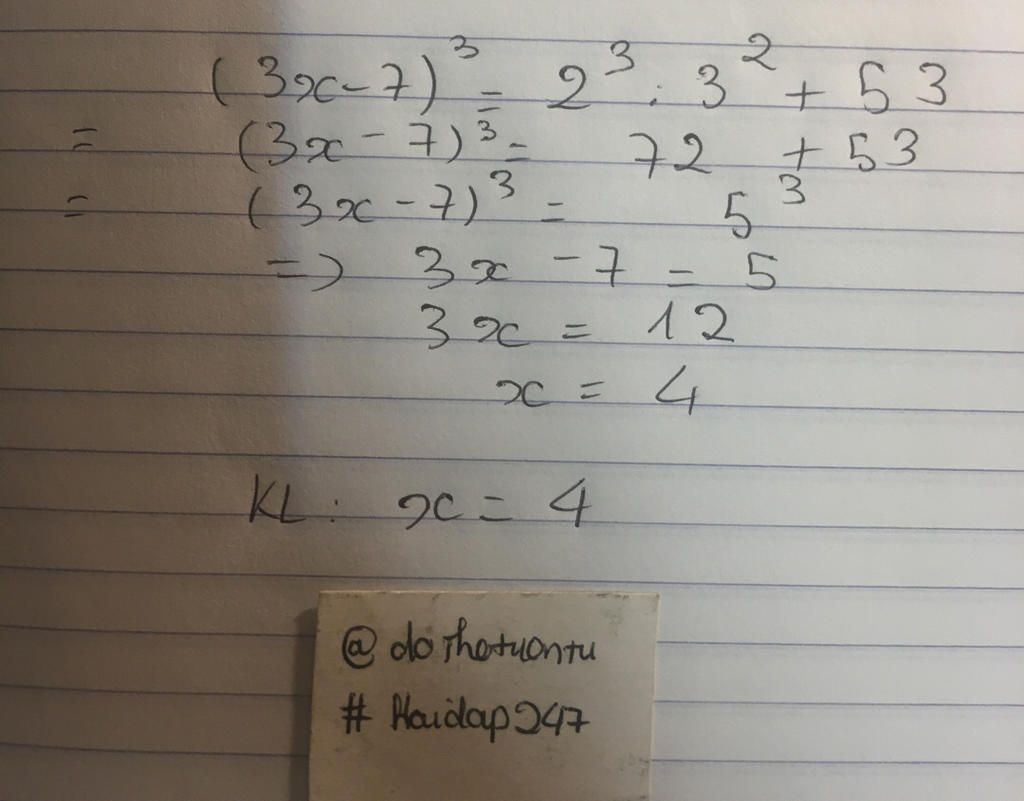 (3x-7)³ = 2³ . 3² + 53
= (3x - 7)³ = 72 + 53
= (3x - 7)³ = 5³
=> 3x - 7 = 5
3x = 12
x = 4
KL: x = 4
@ dothotuontu
# Hoidap247